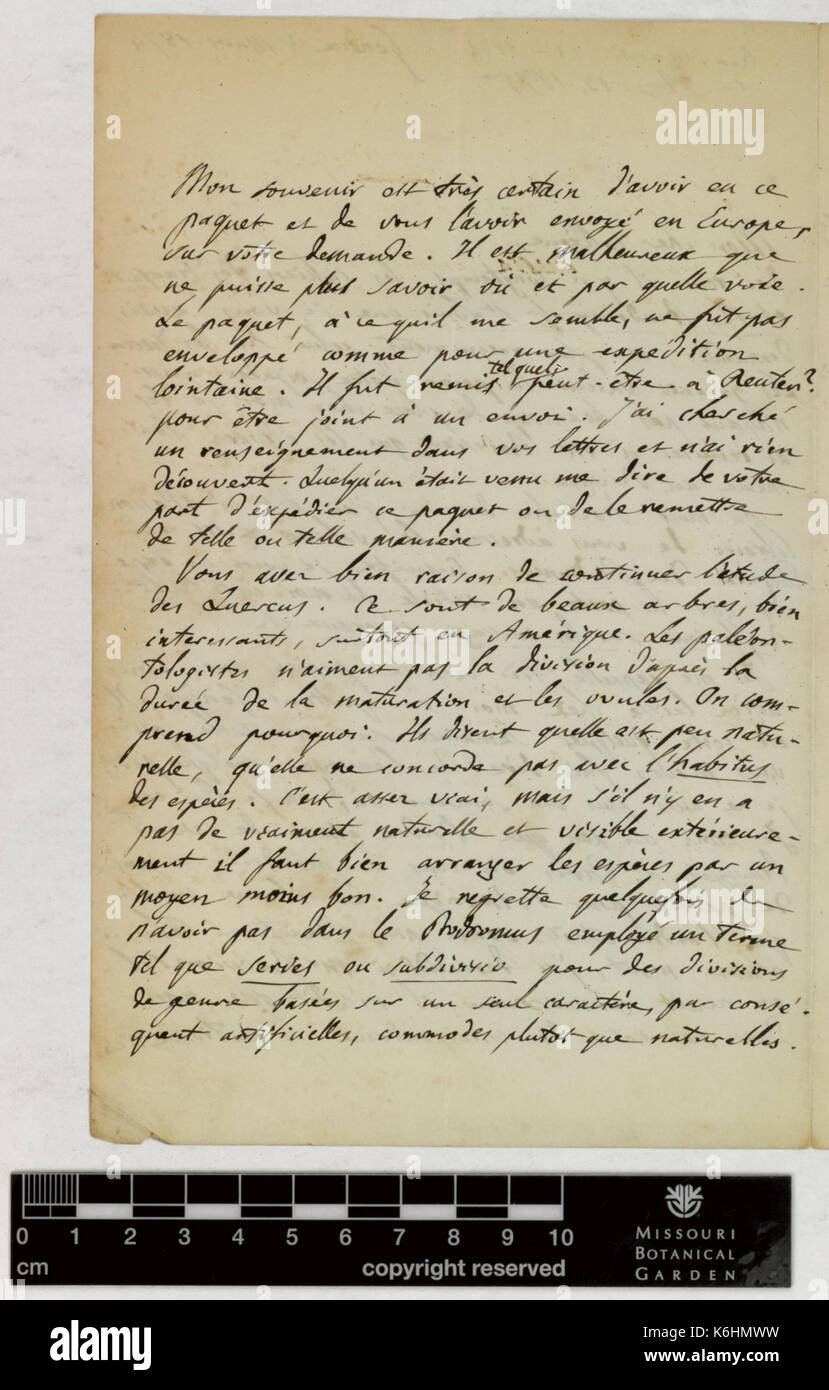 Mon souvenir est très certain d'avoir eu ce
paquet et de vous l'avoir envoyé en Europe,
sur votre demande. Il est malheureux que
ne puisse plus savoir où et par quelle voie.
Le paquet, à ce quil me semble, ne fut pas
enveloppé comme pour une expédition
lointaine. Il fut remis tel quel peut-être à Reuter?
pour être joint à un envoi. J'ai cherché
un renseignement dans vos lettres et n'ai rien
découvert. Quelqu'un était venu me dire de votre
part d'expédier ce paquet ou de le remettre
de telle ou telle manière.
Vous avez bien raison de continuer l'étude
des Quercus. Ce sont de beaux arbres, bien
interessants, surtout en Amérique. Les paléon-
tologistes n'aiment pas la division d'après la
durée de la maturation et les ovules. On com-
prend pourquoi. Ils disent quelle est peu natu-
relle, qu'elle ne concorde pas avec l'habitus
des espèces. C'est assez vrai, mais s'il n'y en a
pas de vraiment naturelle et visible extérieure-
ment il faut bien arranger les espèces par un
moyen moins bon. Je regrette quelquefois de
n'avoir pas dans le Prodromus employé un terme
tel que series ou subdivisio pour des divisions
de genre basées sur un seul caractère, par consé-
quent artificielles, commodes plutot que naturelles.
0 1 2 3 4 5 6 7 8 9 10
cm
copyright reserved
MISSOURI
BOTANICAL
GARDEN
alamy
Image ID: K6HMWW
www.alamy.com